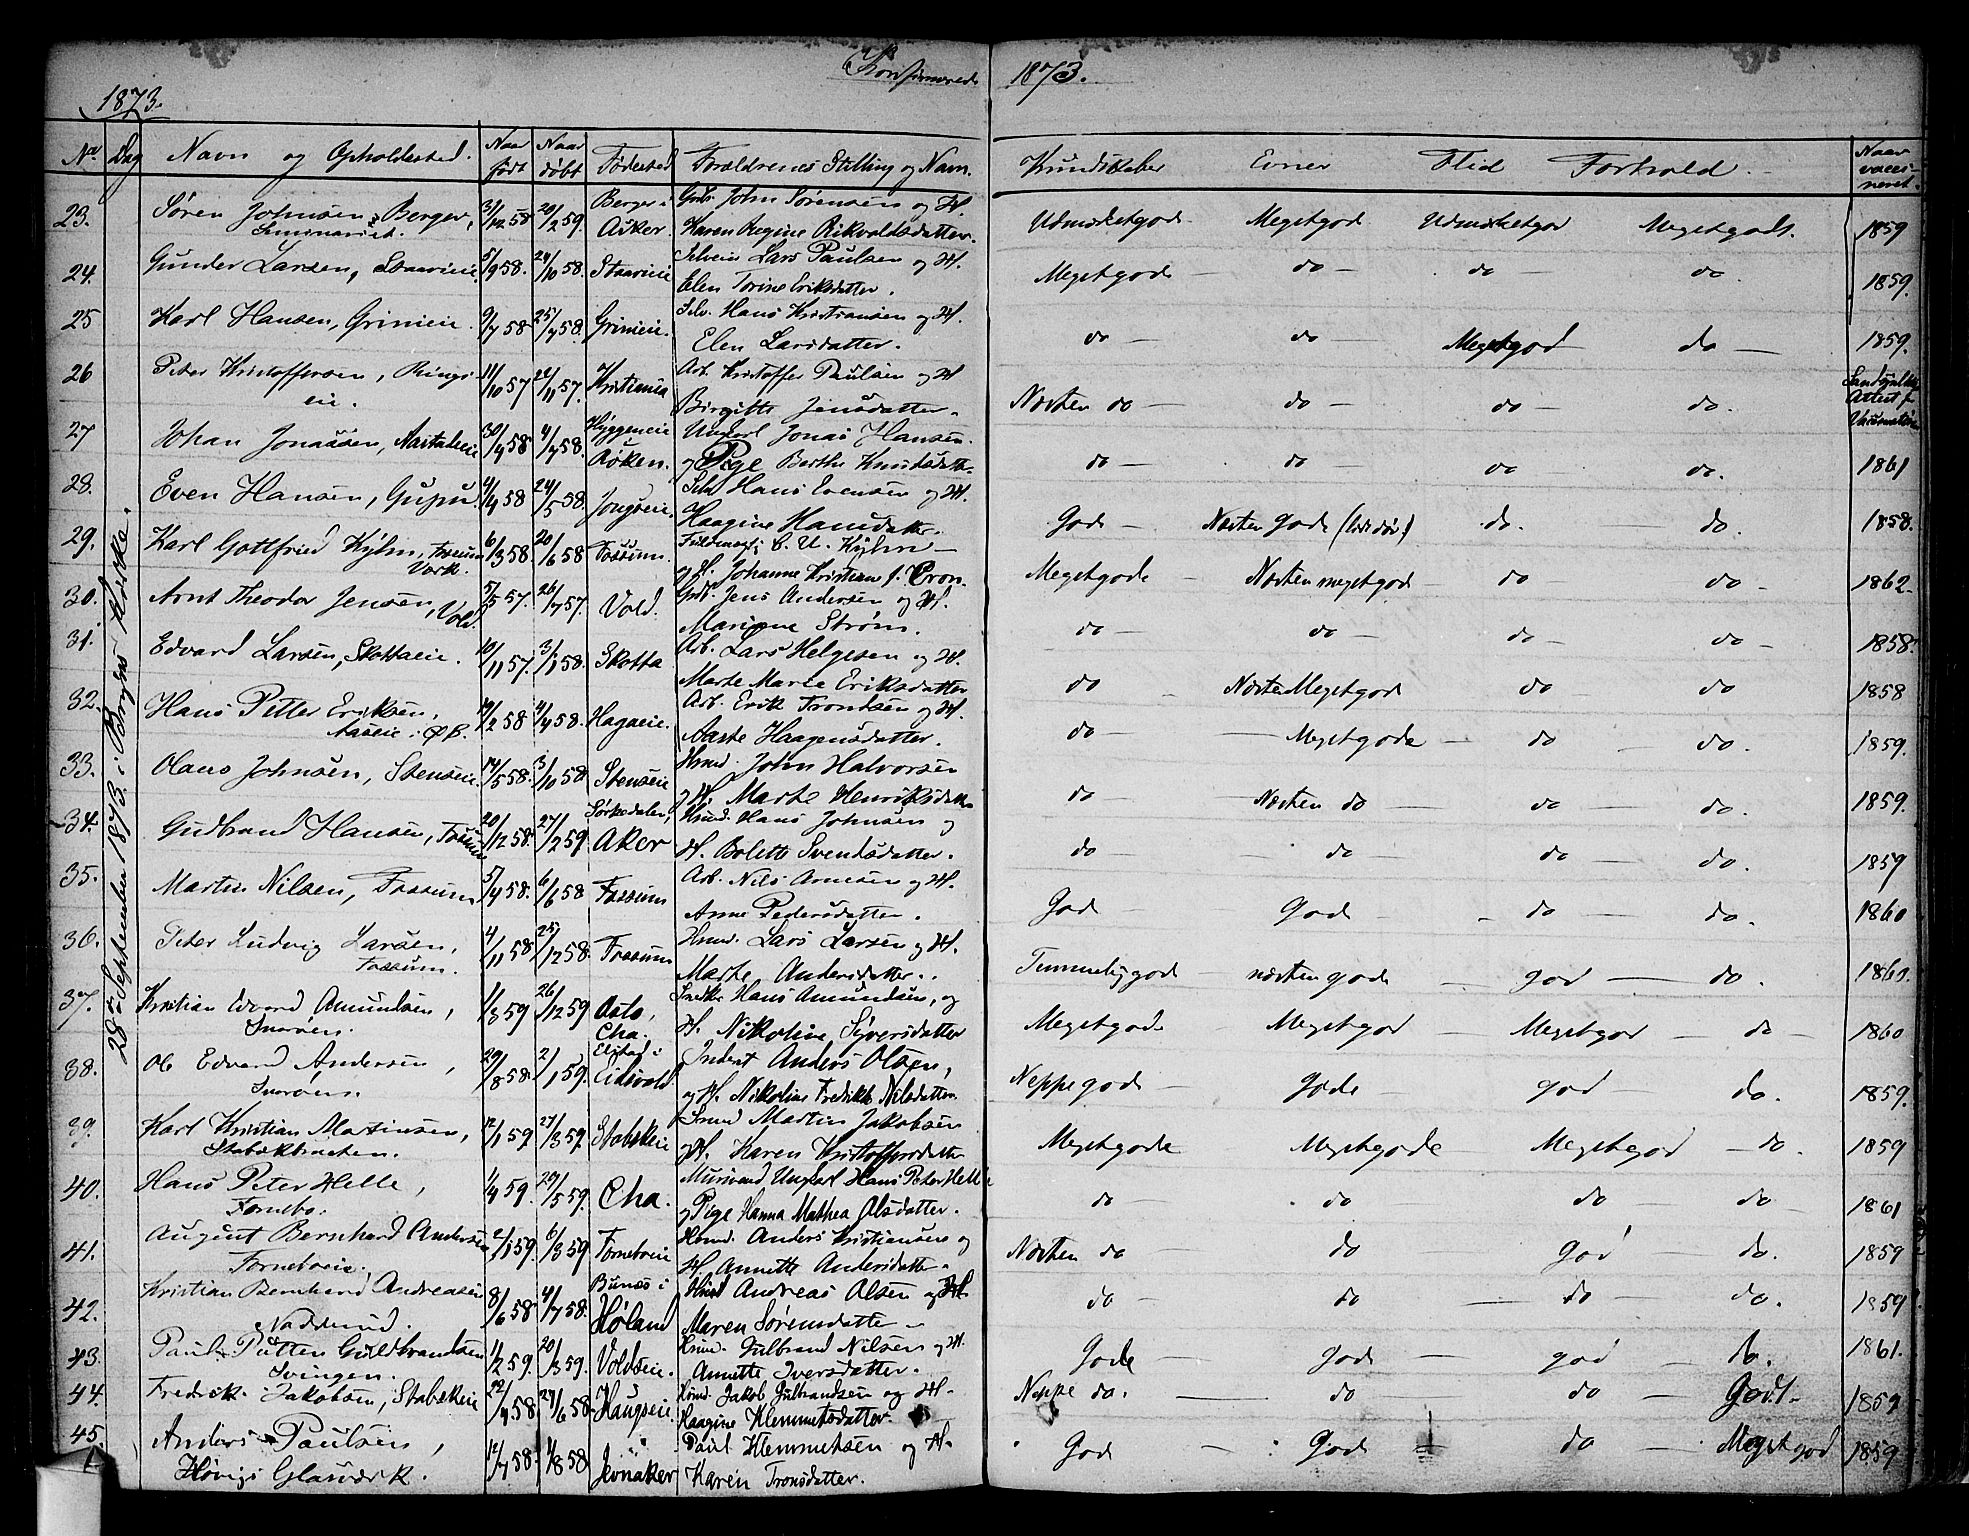 1873.
Konfirmerede
1873.
No Dag Navn og Opholdssted. Naar født Naar døbt Fødested Forældrenes Stilling og Navn. Kundskaber Evner Flid Forhold. Naar vacci-neret.
28de September 1873 i Bryns Kirke.
23. Søren Johnsen Berger, 31/12 58 20/2 59. Berger i Gbr. John Sørensen og H. Udmærketgode Megetgod Udmærketgod Megetgodt. 1859
Seminariet. Asker. Karen Regine Rikvoldsdatter.
24. Gunder Larsen, Staavieie 5/9 58. 24/10 58. Staavieie Selveier Lars Paulsen og H. Megetgode do do do 1859.
Elen Torine Eriksdatter.
25 Karl Hansen, Grinieie. 9/7 58 25/7 58. Grinieie. Selv. Hans Kristiansen og H. do do Megetgod do 1859.
Elen Larsdatter.
26 Peter Kristoffersen, Rings 11/10 57 22/11 57. Kristiania Arb. Kristoffer Paulsen og H Næsten do do do do.
eie. Birgitte Jensdatter.
27 Johan Jonassen, 30/4 58 4/7 58. Hyggeneie Ungkarl Jonas Hansen do do do do. 1861
Røken. og Pige Berthe Knudsdatter
28. Even Hansen, 4/4 58 24/5 58. Jongseie. Selv Hans Evensen og H. Gode Næsten gode do. do. 1858.
Haagine Hansdatter.
29. Karl Gottfried Kyhn, Fossum 6/3 58 20/6 58 Fossum. C. U. Kyhn Megetgode Næsten megetgod do do 1862.
Værk. og H. Johanne Kristiane f. Cron.
30. Arnt Theodor Jensen, 5/5 57 26/7 57. Vold. Gbr. Jens Andersen og H. do do do do 1858.
Vold. Mariane Strøm.
31. Edvard Larsen, Skottaeie. 10/11 57. 3/1 58. Skotta Arb. Lars Helgesen og H. do Næsten Megetgod do do 1858
Marte Marie Eriksdatter
32. Hans Petter Eriksen, 19/2 58 4/4 58. Hagaeie. Arb. Erik Trondsen og H. do Megetgode do do. 1859.
i Ø.B. Aaste Haagensdatter.
33. Olaus Johnsen, Stenseie 14/5 58. 3/10 58 Stenseie Hmd. John Halvorsen do Næsten do do do. 1859.
og H. Marte Henriksdatter
34. Gudbrand Hansen, Fossum 20/12 58. 27/2 59 Sørkedalen, Hmd. Hans Johnsen og do do do do. 1859
Aker H. Bolette Svendsdatter.
35. Martin Nilsen, Fossum 5/4 58. 6/6 58 Fossum Arb. Nils Arnesen og H. God God do do. 1860
Anne Pedersdatter.
36. Peter Ludvig Larsen, 4/11 58 25/12 58. Fossum Hmd. Lars Larsen og H. Temmeliggod næsten gode god do.
Fossum. Marte Andersdatter.
37. Kristian Edvard Amundsen, 1/3 59 26/12 59 Oslo, Snedker Hans Amundsen, og Megetgode Megetgod Megetgod do 1860
Snarøen. Cha. H. Nikoline Syversdatter
38. Ole Edvard Andersen, 29/8 58. 2/1 59. Inderst Anders Olsen, Neppe gode gode god do. 1859.
Snarøen. Eidsvold. og H. Nikoline Fredrikke Nilsdatter
39. Karl Kristian Martinsen, 12/1 59 27/3 59. Stabækeie Smed Martin Jakobsen Megetgode Megetgode Megetgod do. 1859
Stabækbraaten. og H. Karen Kristoffersdatter
40. Hans Peter Helle, 1/4 59. 29/5 59. Cha. Mursvend Ungkarl Hans Peter Helle do do do do 1861
Fornebo. og Pige Hanna Mathea Olsdatter.
41. August Bernhard Andersen 2/1 59. 6/3 59 Forneboeie Hmd. Anders Kristiansen og Næsten do do god do. 1859
Forneboeie. H. Annette Andersdatter.
42. Kristian Bernhard Andreassen 8/6 58 4/7 58. Bunæs i Hmd Andreas Olsen og H. do do do do. 1859
Nadderud. Høland Maren Sørensdatter
43. Paul Petter Guldbrandsen 1/2 59. 20/3 59. Voldseie. Hmd. Gulbrand Nilsen og H. Gode gode god do. 1861.
Svingen. Annette Iversdatter.
44. Fredrik Jakobsen, Stabækeie 22/4 58 27/6 58. Haugseie. Hmd. Jakob Gulbrandsen og H. Neppe do. do do Godt 1859
Haagine Klemmetsdatter
45. Anders Paulsen, 12/7 58. 1/8 58 Jevnaker Paul Klemmetsen og H. God God do Megetgod 1859
Høviks Glasværk. Karen Tronsdatter.